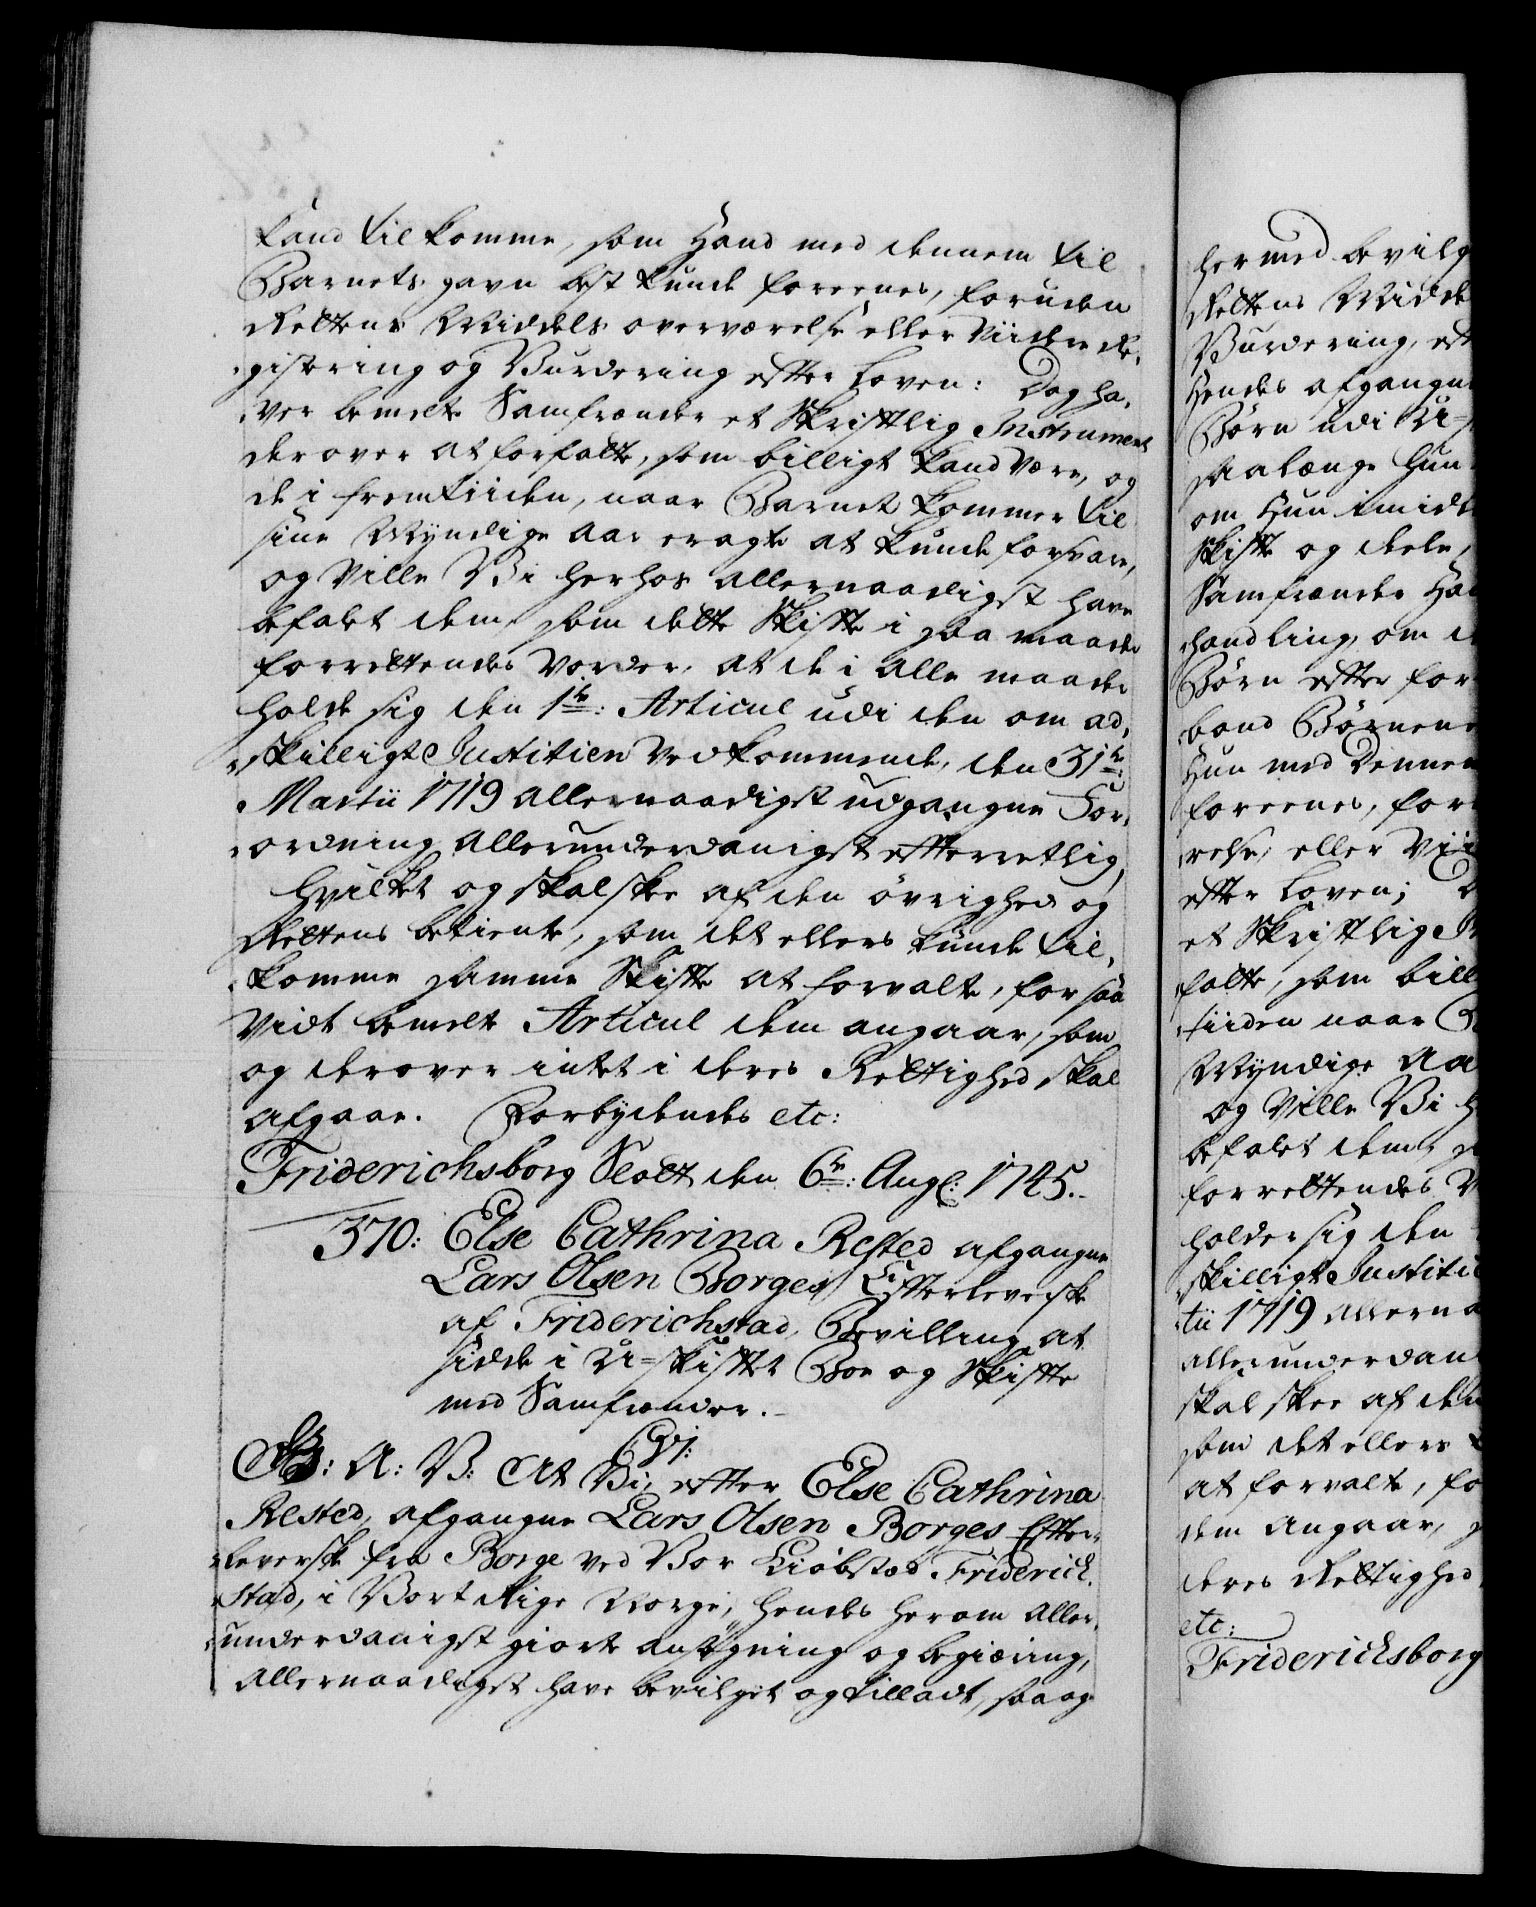 kand tilkomme, som Hand med dennem til
Barnets gavn best kunde foreenes, foruden
Rettens Middels overværelse eller Viidere Re-
gistering og Vurdering efter Loven: Dog ha-
ver bemelte Samfrender et Skrifftlig Instrument
derover at forfatte, som billigt kand være, og
de i fremtiiden, naar Barnet kommer til
sine Myndige Aar eragte at kunde forsvare,
og Ville Vi herhos allernaadigst have
befalet dem, som dette Skiffte i saa maade
forrettendes vorder, at de i alle maader
holde sig den 1te: Articul udi den om ad-
skilligt Justitien vedkommende, den 31te:
Martii 1719 allernaadigst udgangne For-
ordning allerunderdanigst efterretlig,
hvilket og skal skee af den øvrighed og
Rettens betiente, som det ellers kunde til-
komme samme Skiffte at forvalte, for saa
vidt bemelte Articul dem angaar, som
og derover intet i deres Rettighed skal
afgaae. Forbydendes etc:
Friderichsborg Slott den 6te: Aug: 1745.
370: Else Cathrina Rested afgangne
Lars Olsen Borges Effterleverske
af Friderichstad, Bevilling at
sidde i U-skifftet Boe og Skiffte
med Samfrender.
C6: G:
A: V: At Vi, efter Else Cathrina
Rested, afgangne Lars Olsen Borges Effter-
leverske fra Borge ved Vor Kiøbstad Friderich-
stad, i Vort Rige Norge, hendes herom aller-
underdanigst giorte ansøgning og begiæring,
allernaadigst have bevilget og tilladt, saa og
hermed bevilg
Rettens Midde
Vurdering, eft
Hendes afgangne
Børn udi U-
saalænge Hun
om Hun imidl
Skiffte og deele,
Samfrender Ha
handling, om
Børn efter for
band Børnene
Hun med Dennem
foreenes, for
relse, eller Vii
efter Loven;
et Skrifftlig
fatte, som bill
tiiden naar
Myndige Aa
og Ville Vi
befalet dem,
forrettendes
holder sig den
skilligt Justiti
tii 1719 allerna
allerunderdan
skal skee af den
som det ellers
at forvalte, fo
dem angaar,
deres Rettighed
etc:
Friderichsborg